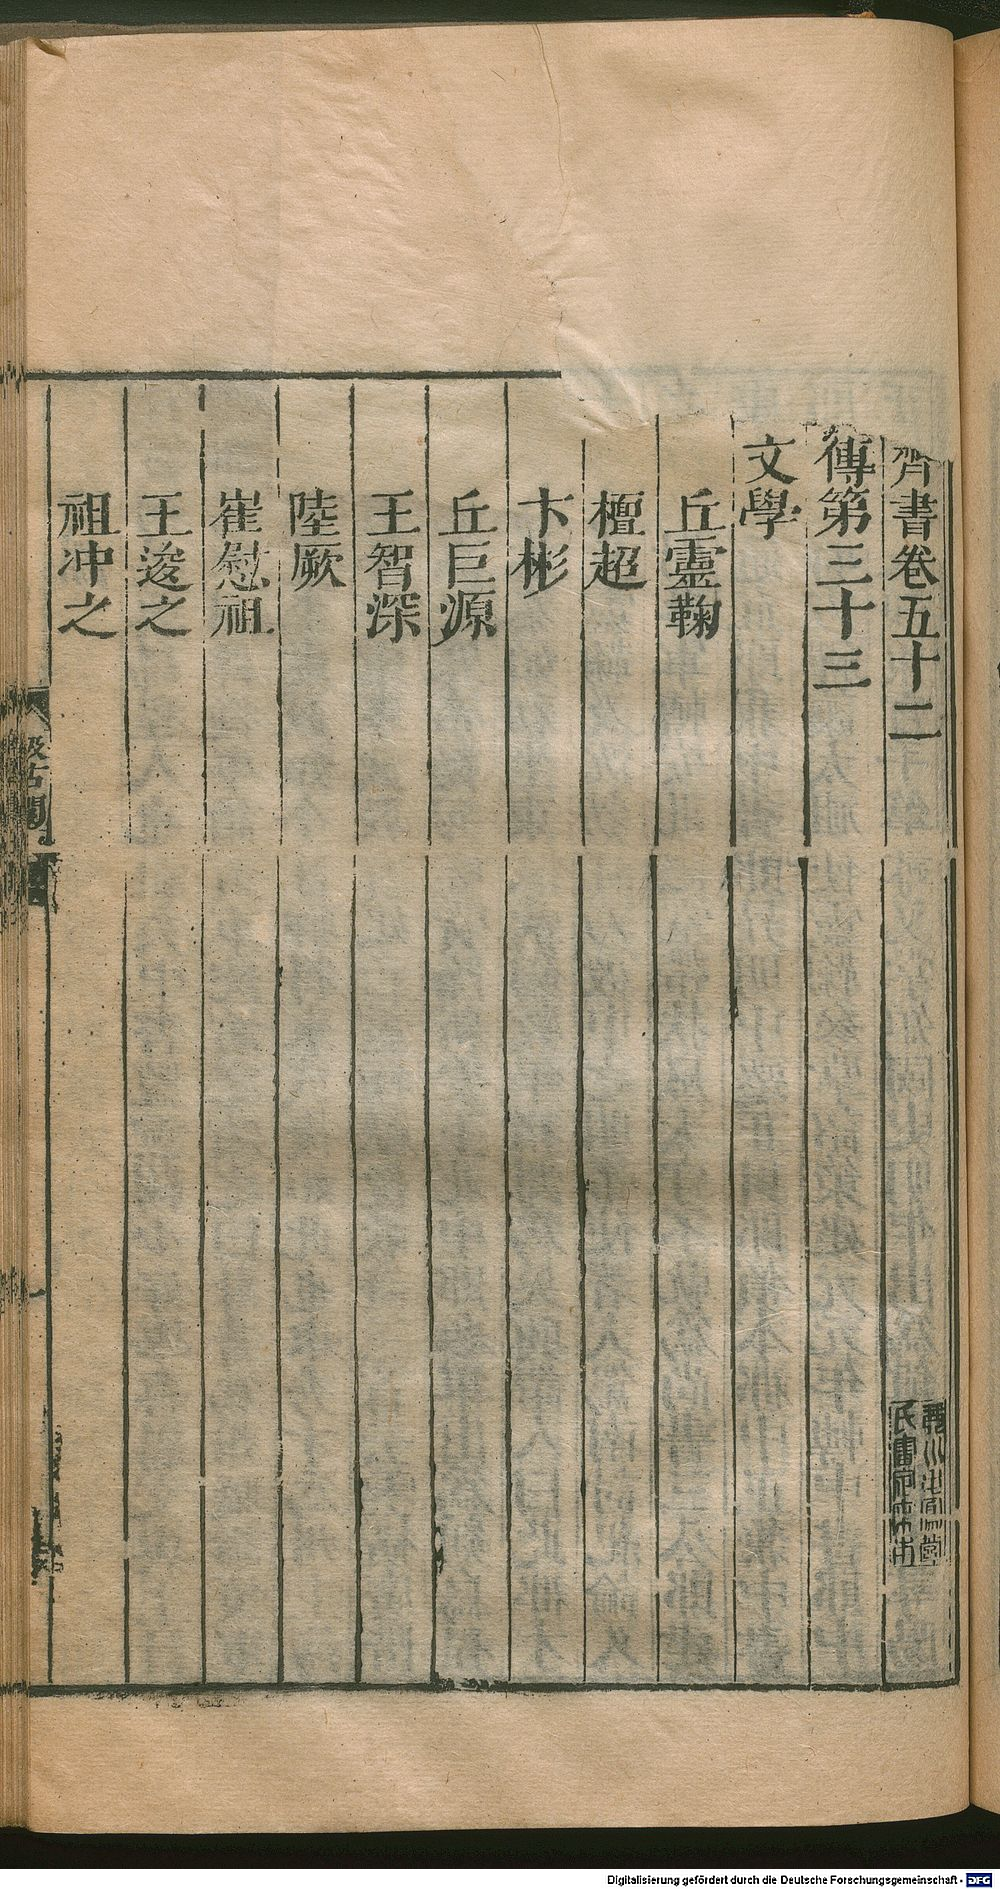 齊書卷五十二
傳第三十三
文學
丘靈鞠
檀超
卞彬
丘巨源
王智深
陸厥
崔慰祖
王逡之
祖沖之
汲古閣
Digitalisierung gefördert durch die Deutsche Forschungsgemeinschaft - DFG